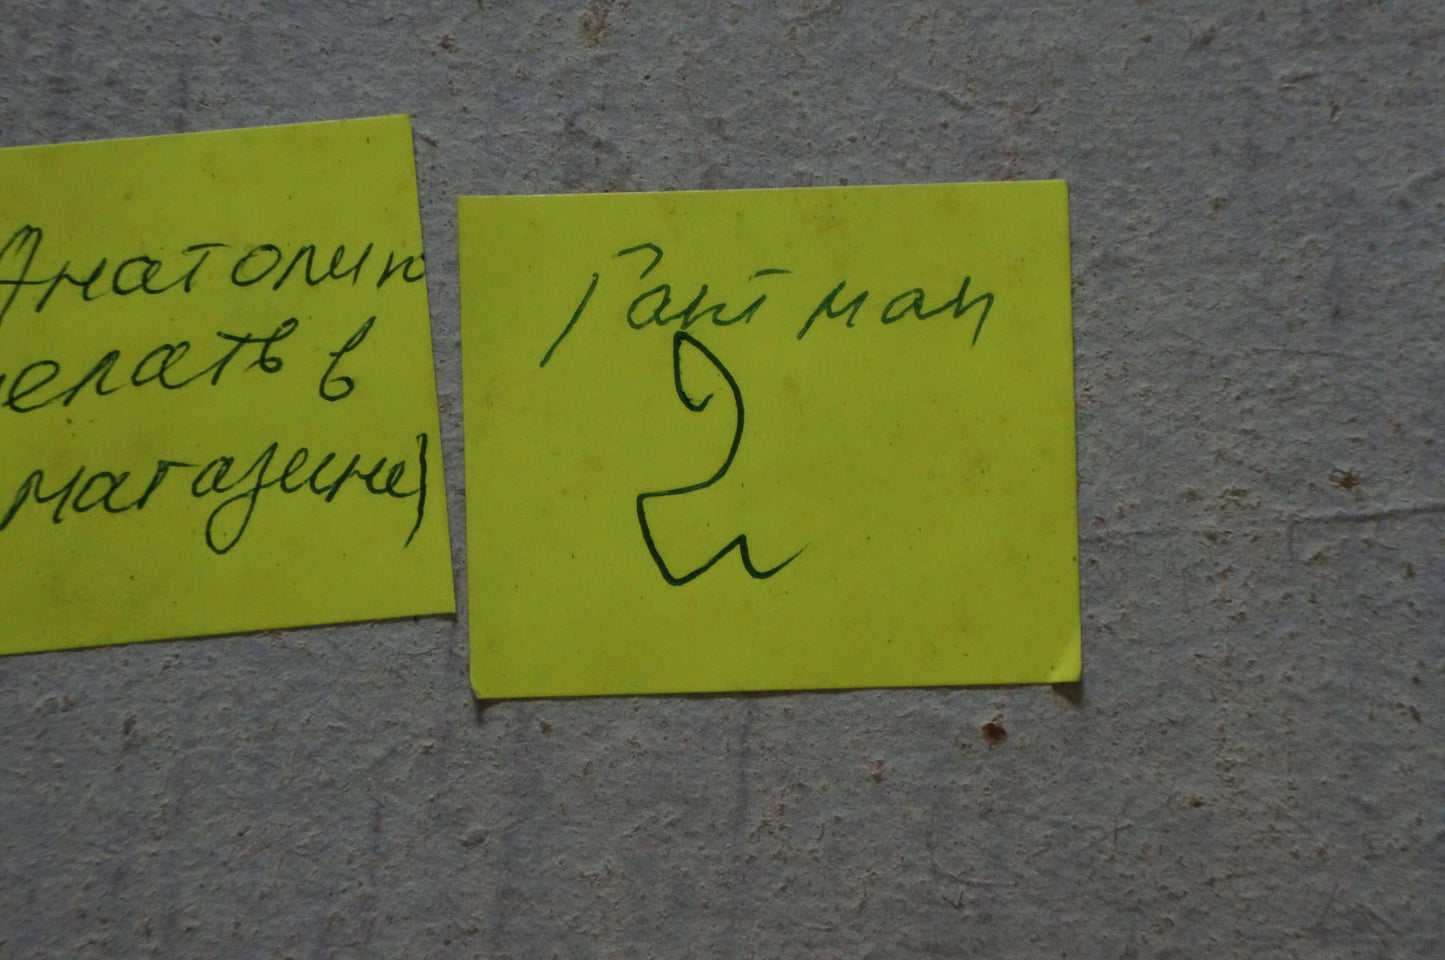 Анатолии
елать в
магазине)
Гантман
2